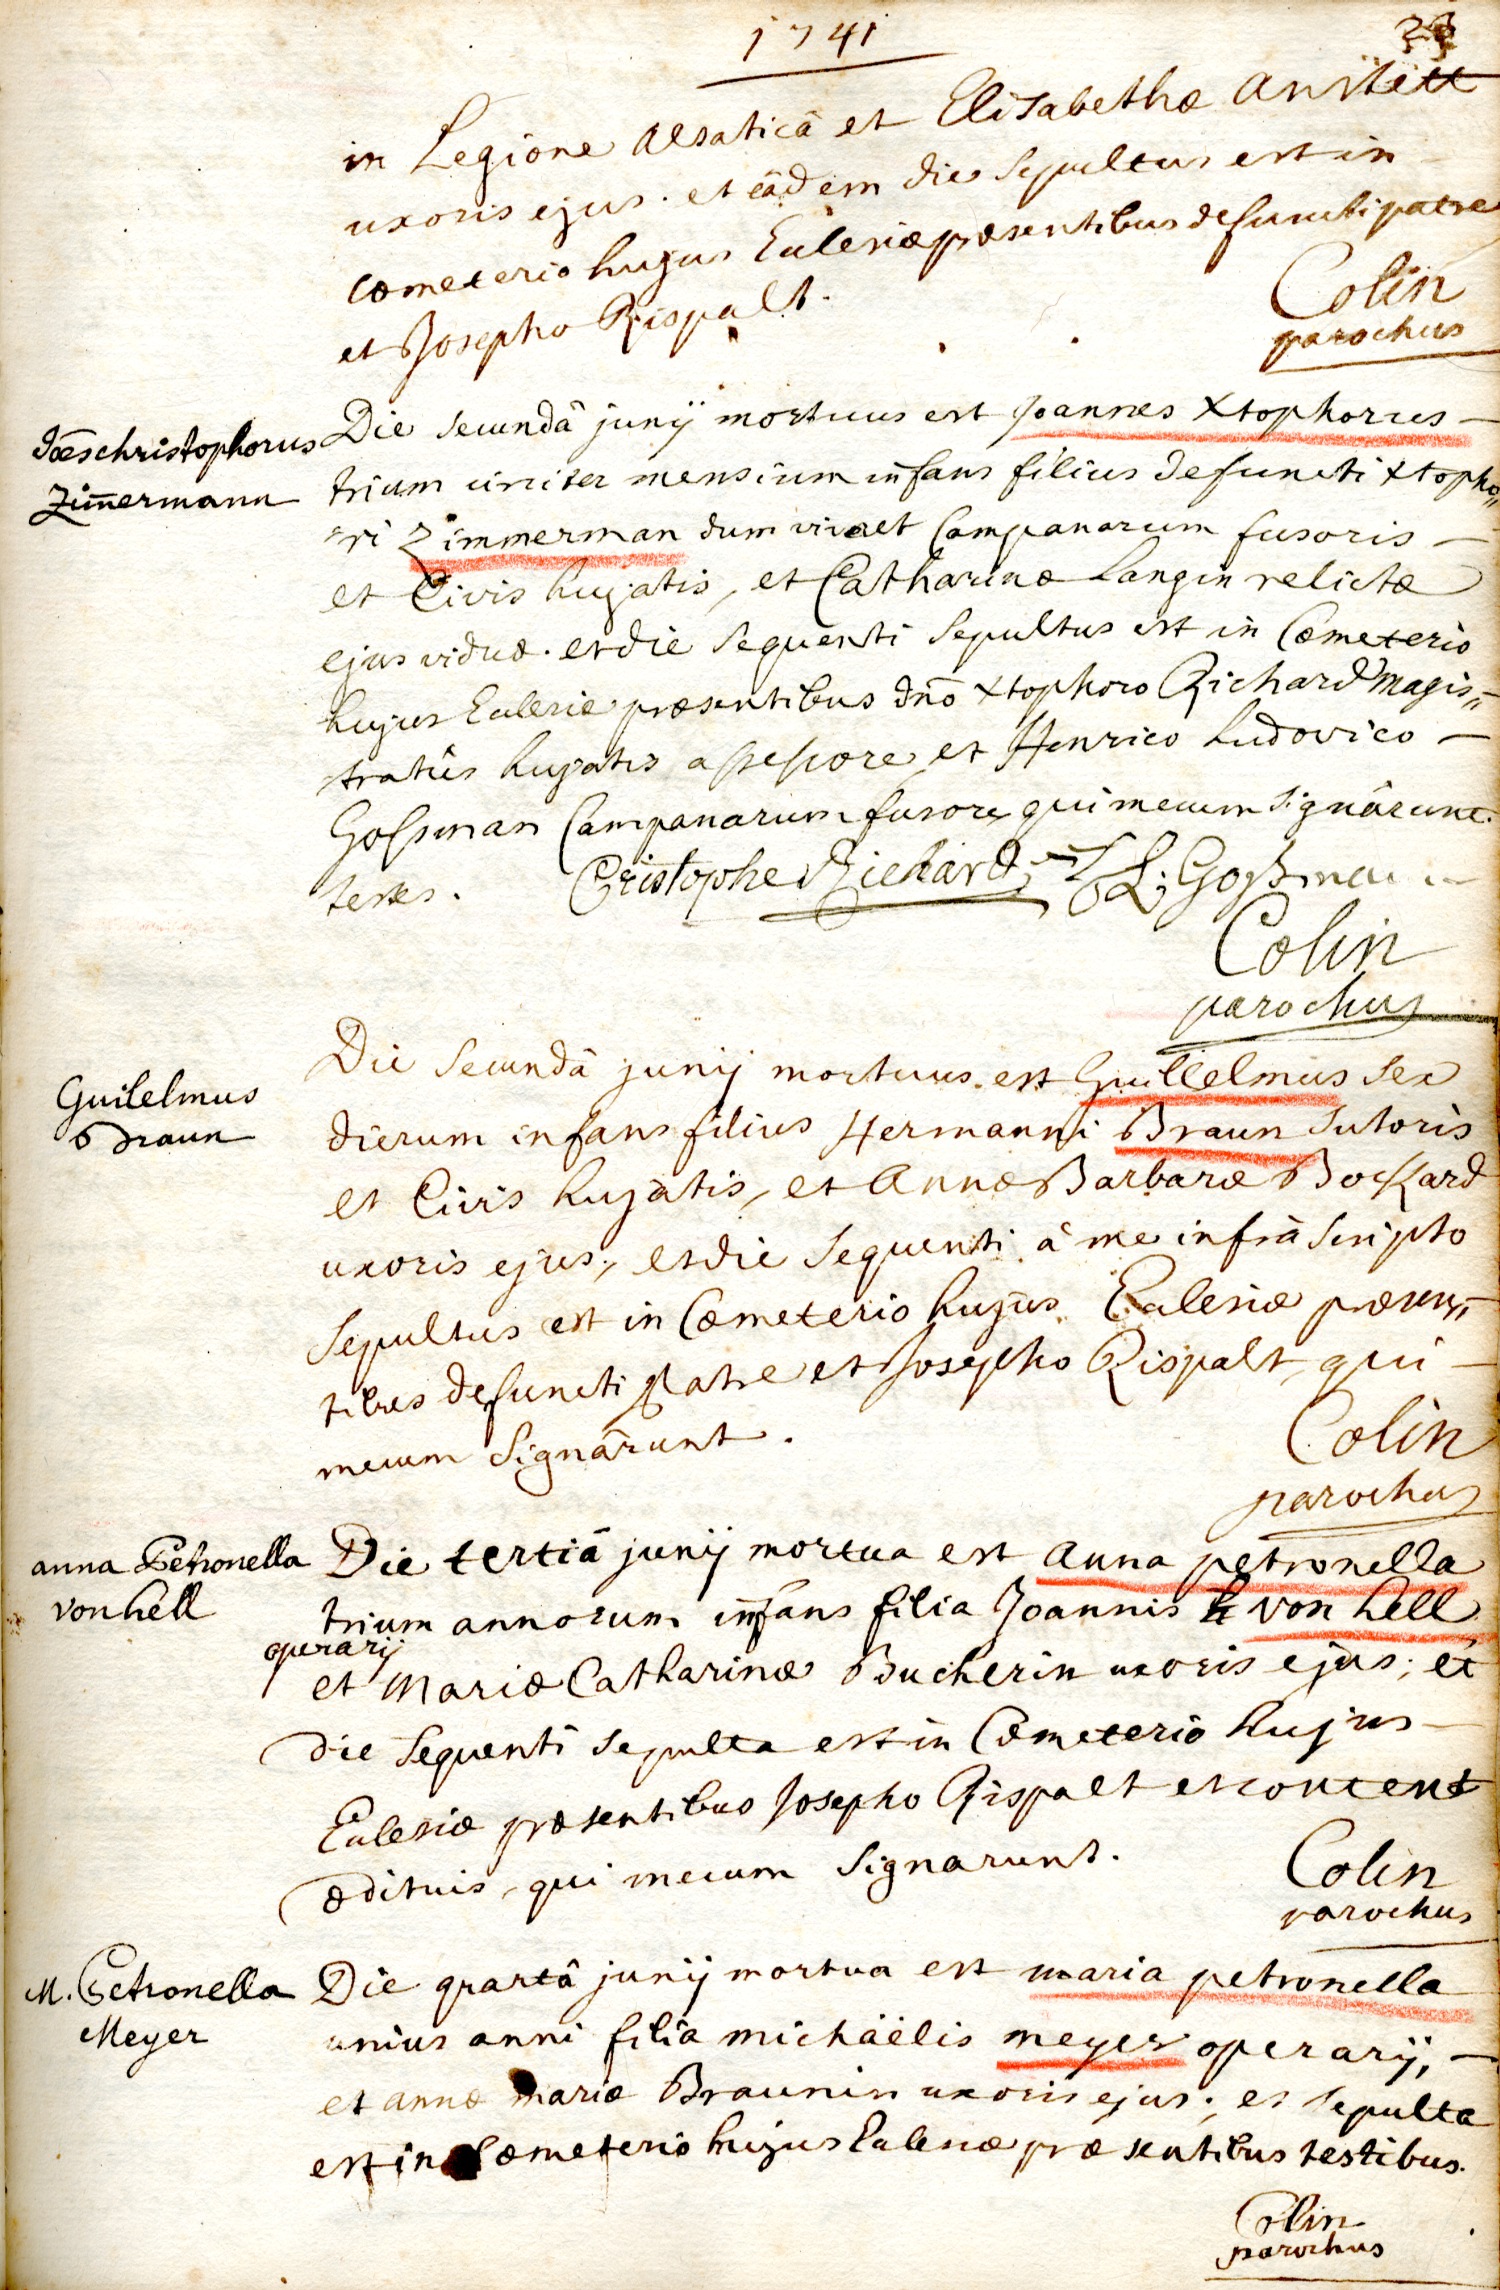 1741
in Legione Alsaticâ et Elisabethæ Anstett
uxoris ejus. et eâdem die sepultus est in
cœmeterio hujus Ecclesiæ præsentibus defuncti patre
et Josepho Rispalt.
Colin
parochus
Joēs christophorus
Zim̄ermann
Die secundâ junÿ mortuus est Joannes Xtophorus —
trium circiter mensium infans filius defuncti Xtopho„
„ri Zimmerman dum viveret Campanarum fusoris —
et Civis hujatis, et Catharinæ Langin relictæ
ejus viduæ. et die sequenti sepultus est in Cœmeterio
hujus Ecclesiæ præsentibus dn̄o Xtophoro Richard Magis„
tratûs hujatis assessore et Henrico Ludovico —
Gossman Campanarum fusore, qui mecum signârunt.
testes.
Cristophe Richard
H L; Goßman
Colin
parochus
Guilelmus
Braun
Die secundâ junij mortuus est Guillelmus sex
dierum infans filius Hermanni Braun sutoris
et Civis hujatis, et Annæ Barbaræ Bockard
uxoris ejus; et die sequenti à me infrà scripto
sepultus est in Cœmeterio hujus Ecclesiæ præsen„
tibus defuncti patre et Josepho Rispalt, qui —
mecum signârunt.
Colin
parochus
anna Petronella
von hell
Die tertiâ junij mortua est anna petronella
trium annorum infans filia Joannis von hell
operarij
et Mariæ Catharinæ Bucherin uxoris ejus; et
die sequenti sepulta est in Cœmeterio hujus —
Ecclesiæ præsentibus Josepho Rispalt et content
ædituis, qui mecum signarunt.
Colin
parochus
M. Petronella
Meyer
Die quartâ junij mortua est maria petronella
unius anni filia michäëlis meyer operarij, —
et annæ mariæ Braunin uxoris ejus; et sepulta
est in Cœmeterio hujus Ecclesiæ præsentibus testibus.
Colin
parochus